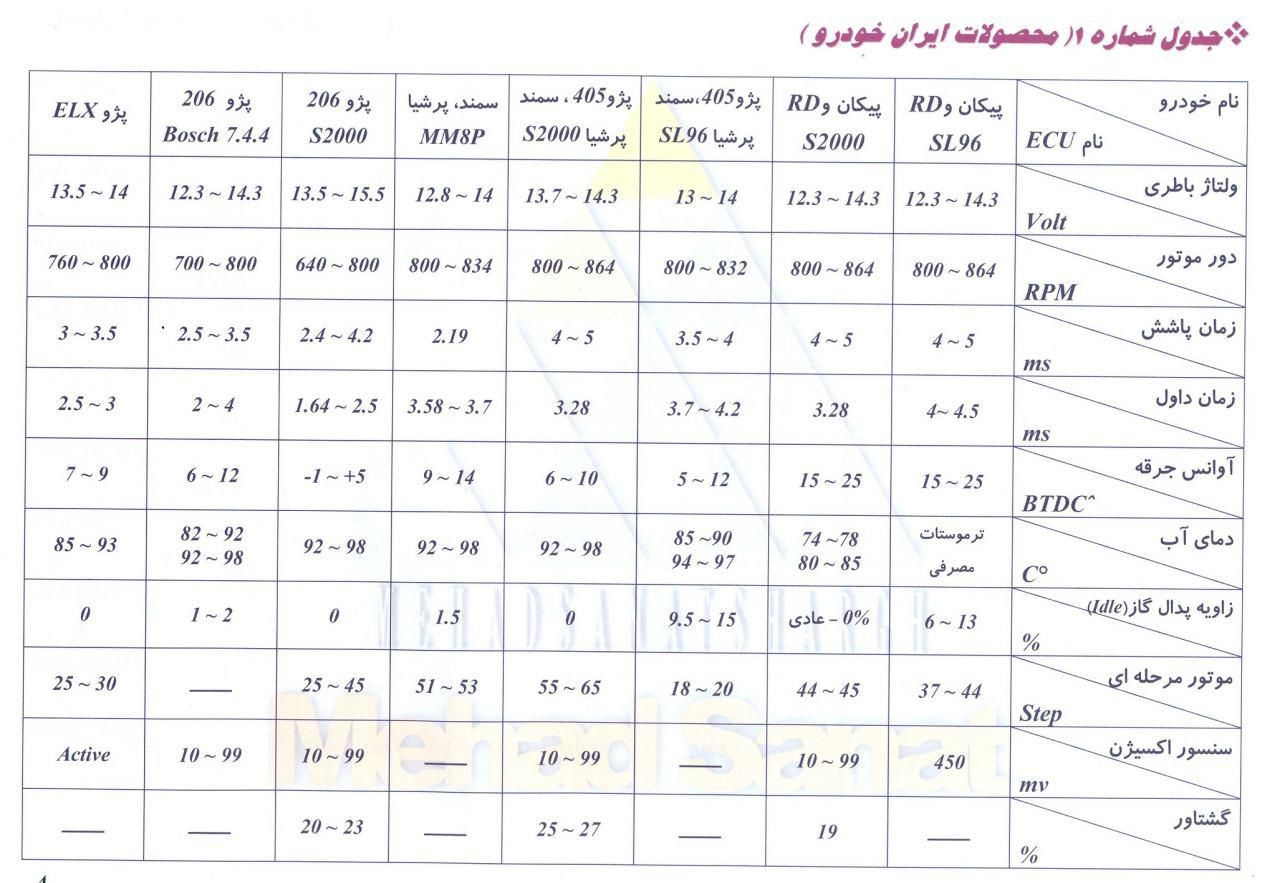 ❖جدول شماره ۱( محصولات ایران خودرو )
نام خودرو
نام ECU
پیکان وRD
SL96
پیکان وRD
S2000
پژو405،سمند
پرشیا SL96
پژو405، سمند
پرشیا S2000
سمند، پرشیا
MM8P
پژو 206
S2000
پژو 206
Bosch 7.4.4
پژو ELX
ولتاژ باطری
Volt
12.3 ~ 14.3
12.3 ~ 14.3
13 ~ 14
13.7 ~ 14.3
12.8 ~ 14
13.5 ~ 15.5
12.3 ~ 14.3
13.5 ~ 14
دور موتور
RPM
800 ~ 864
800 ~ 864
800 ~ 832
800 ~ 864
800 ~ 834
640 ~ 800
700 ~ 800
760 ~ 800
زمان پاشش
ms
4 ~ 5
4 ~ 5
3.5 ~ 4
4 ~ 5
2.19
2.4 ~ 4.2
2.5 ~ 3.5
3 ~ 3.5
زمان داول
ms
4~ 4.5
3.28
3.7 ~ 4.2
3.28
3.58 ~ 3.7
1.64 ~ 2.5
2 ~ 4
2.5 ~ 3
آوانس جرقه
BTDC^
15 ~ 25
15 ~ 25
5 ~ 12
6 ~ 10
9 ~ 14
-1 ~ +5
6 ~ 12
7 ~ 9
دمای آب
C°
ترموستات
مصرفی
74 ~78
80 ~ 85
85 ~90
94 ~ 97
92 ~ 98
92 ~ 98
92 ~ 98
82 ~ 92
92 ~ 98
85 ~ 93
زاویه پدال گاز(Idle)
%
6 ~ 13
0% – عادی
9.5 ~ 15
0
1.5
0
1 ~ 2
0
موتور مرحله ای
Step
37 ~ 44
44 ~ 45
18 ~ 20
55 ~ 65
51 ~ 53
25 ~ 45
——
25 ~ 30
سنسور اکسیژن
mv
450
10 ~ 99
——
10 ~ 99
——
10 ~ 99
10 ~ 99
Active
گشتاور
%
——
19
——
25 ~ 27
——
20 ~ 23
——
——
MEHADSANATSHARGH
Mehad Sanat